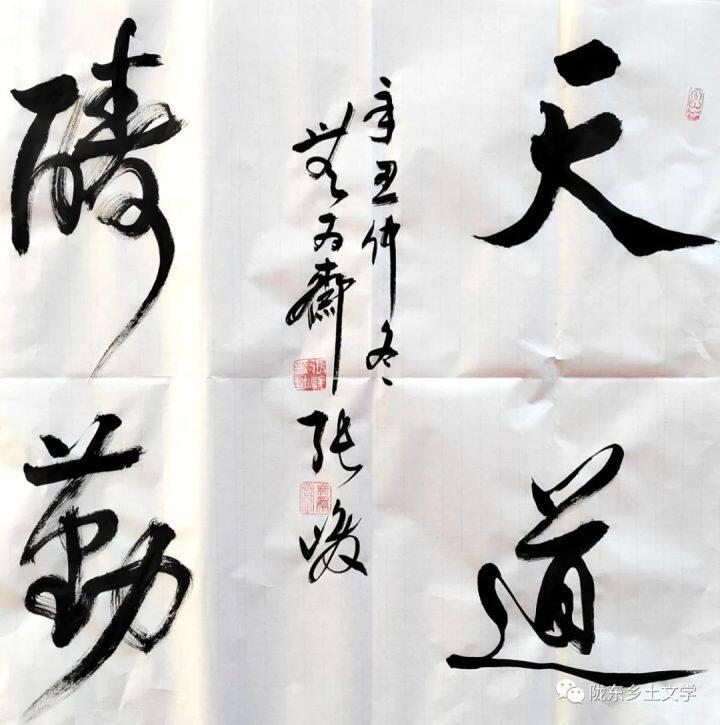 天道
酬勤
辛丑仲冬
無为齋张峻
陇东乡土文学